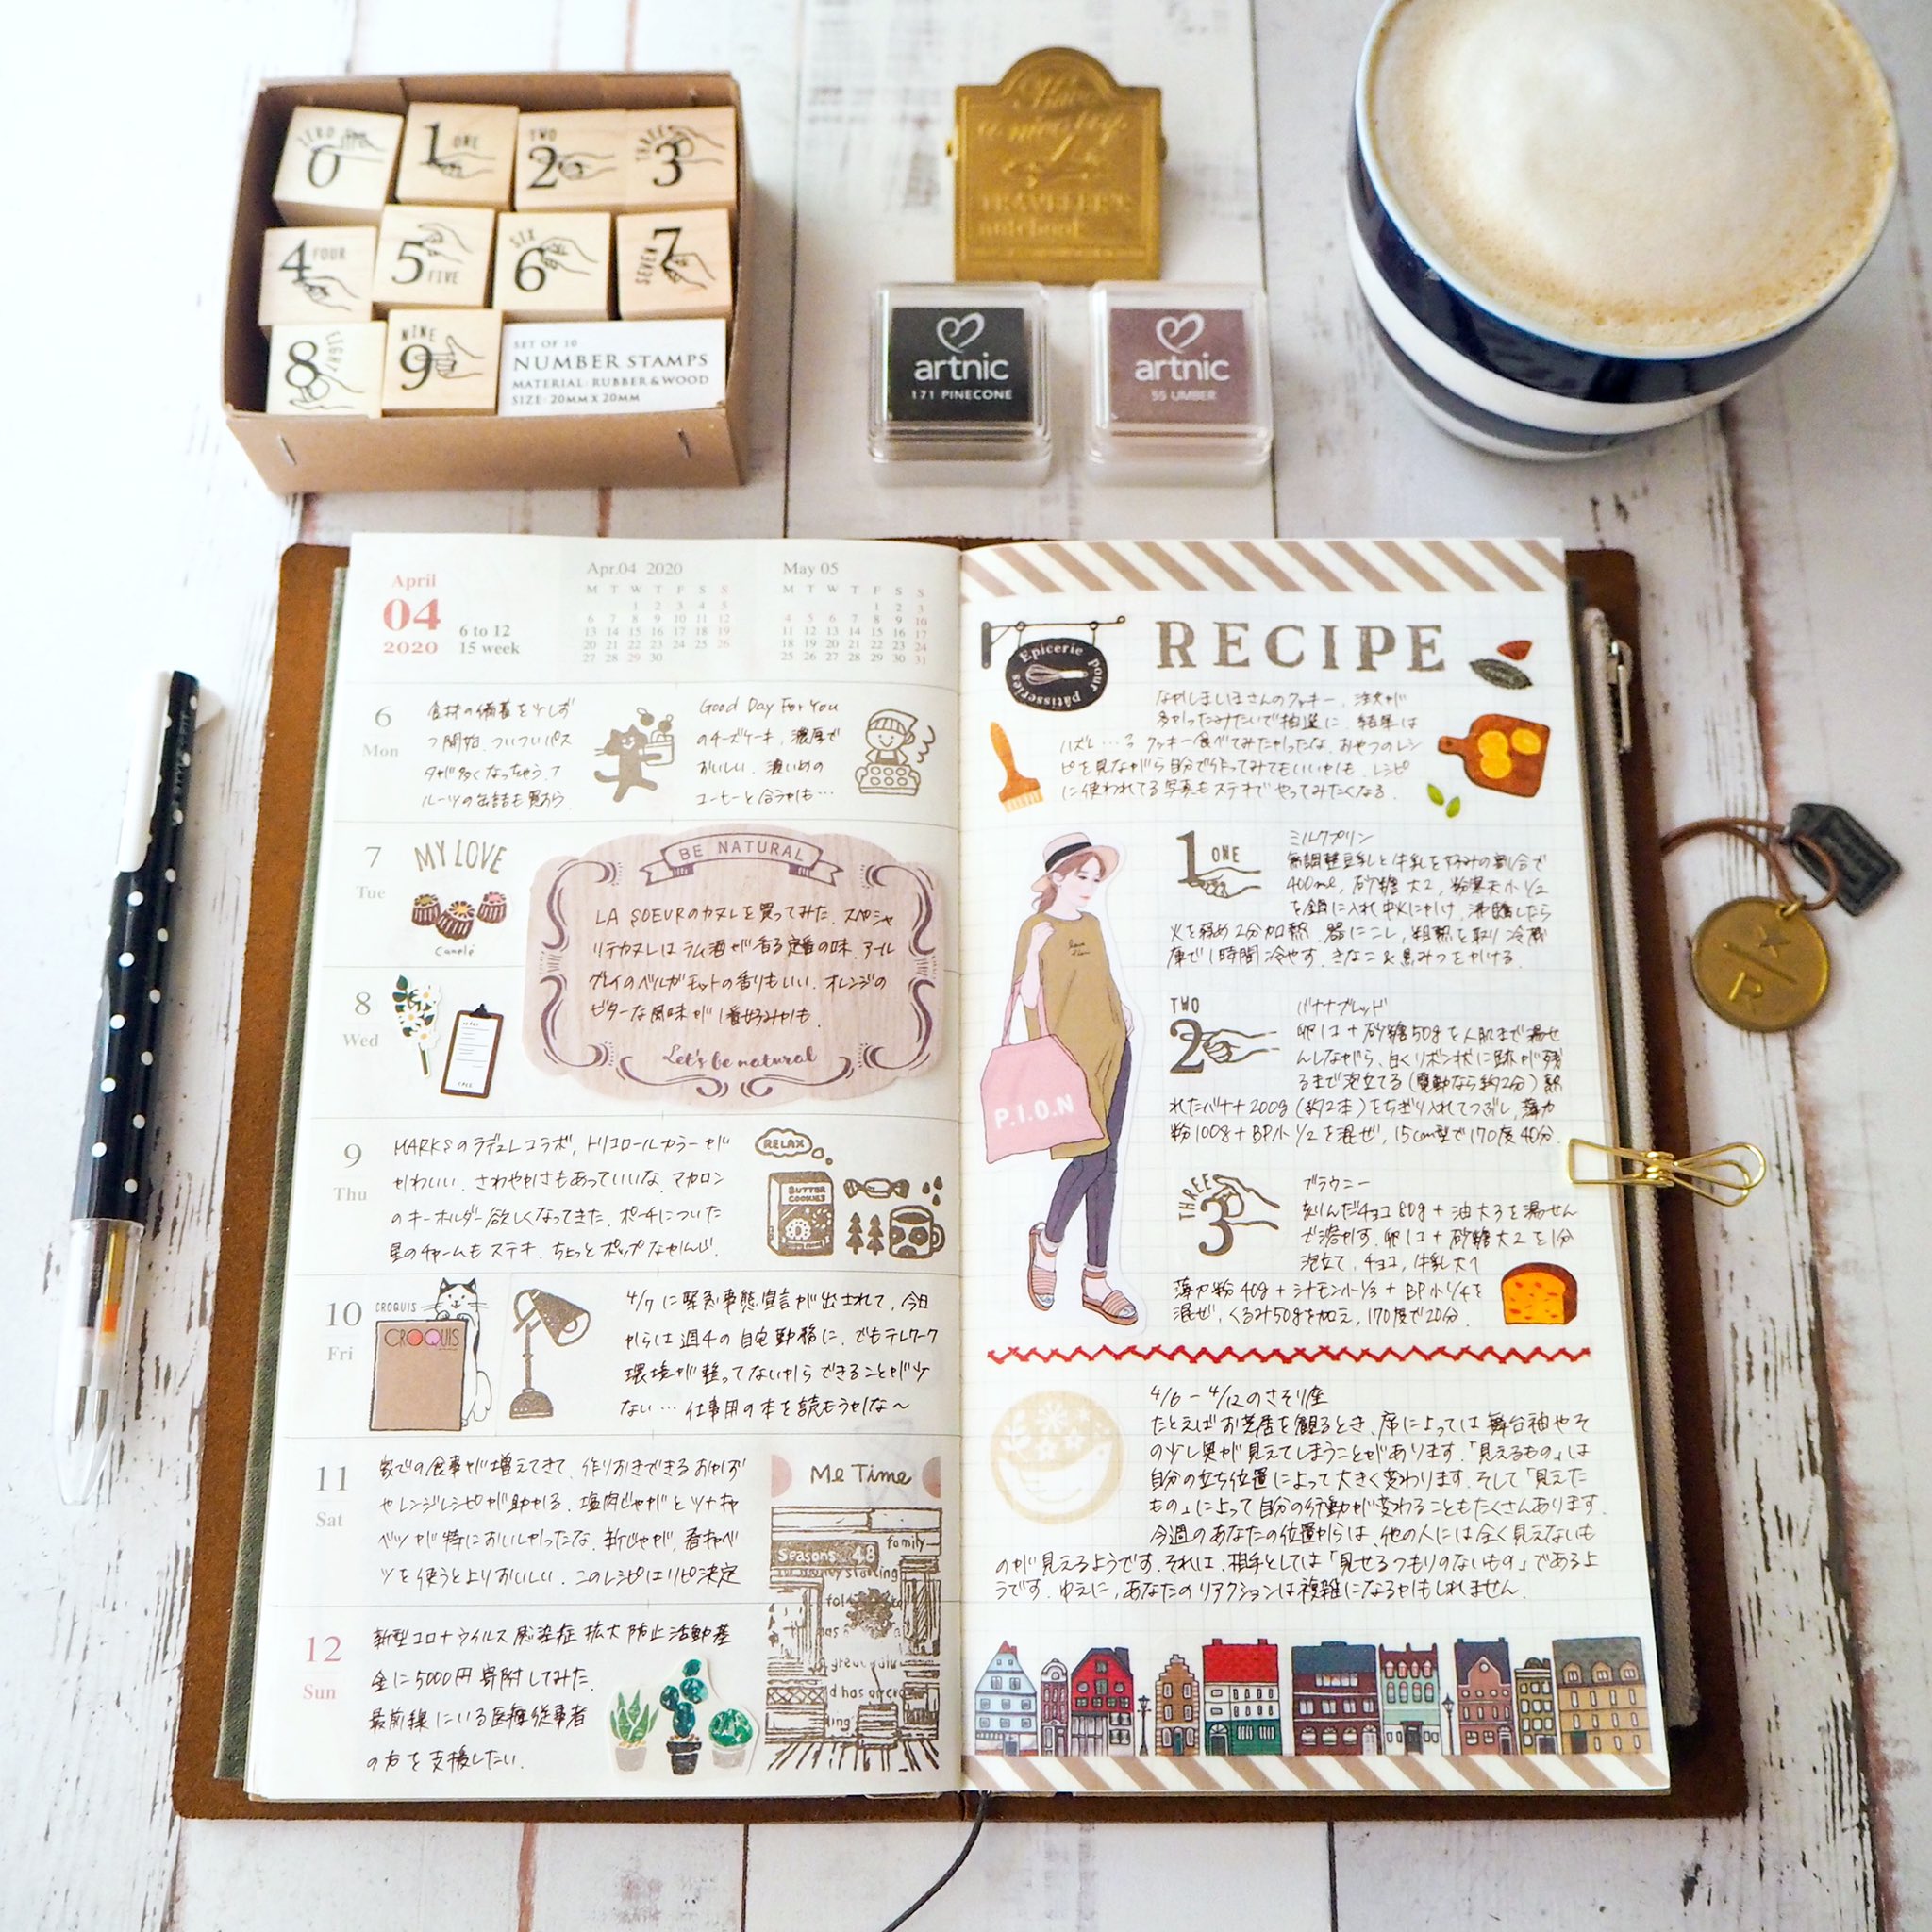 ZERO 0
1 ONE
TWO 2
THREE 3
4 FOUR
5 FIVE
SIX 6
SEVEN 7
8 EIGHT
NINE 9
SET OF 10
NUMBER STAMPS
MATERIAL: RUBBER & WOOD
SIZE: 20MM X 20MM
TRAVELER'S
notebook
artnic
171 PINECONE
artnic
55 UMBER
April
04
2020
6 to 12
15 week
Apr.04 2020
M T W T F S S
1 2 3 4 5
6 7 8 9 10 11 12
13 14 15 16 17 18 19
20 21 22 23 24 25 26
27 28 29 30
May 05
M T W T F S S
1 2 3
4 5 6 7 8 9 10
11 12 13 14 15 16 17
18 19 20 21 22 23 24
25 26 27 28 29 30 31
6
Mon
食材の備蓄を少しず
つ開始。ついついパス
タが多くなっちゃう。フ
ルーツの缶詰も買おう。
Good Day For You
のチーズケーキ、濃厚で
おいしい。濃いめの
コーヒーと合うかも…
7
Tue
MY LOVE
Canelé
BE NATURAL
LA SOEURのカヌレを買ってみた。スペシャ
リテカヌレはラム酒が香る定番の味。アール
グレイのベルガモットの香りもいい。オレンジの
ビターな風味が1番好みかも。
Let's be natural
8
Wed
9
Thu
MARKSのラデュレコラボ、トリコロールカラーが
かわいい。さわやかさもあっていいな。マカロン
のキーホルダー欲しくなってきた。ポーチについた
星のチャームもステキ。ちょっとポップなかんじ。
RELAX
BUTTER
COOKIES
10
Fri
CROQUIS
CROQUIS
4/7に緊急事態宣言が出されて、今日
からは週4の自宅勤務に。でもテレワーク
環境が整ってないからできることが少
ない…仕事用の本を読もうかな〜
11
Sat
家での食事が増えてきて、作りおきできるおかず
やレンジレシピが助かる。塩肉じゃがとツナキャ
ベツが特においしかったな。新じゃが、春キャベ
ツを使うとよりおいしい。このレシピはリピ決定
Me Time
family
Seasons 48
12
Sun
新型コロナウイルス感染症拡大防止活動基
金に5000円寄附してみた。
最前線にいる医療従事者
の方を支援したい。
Epicerie
pour patisseries
RECIPE
なかしましほさんのクッキー、注文が
多かったみたいで抽選に。結果は
ハズレ…? クッキー食べてみたかったな。おやつのレシ
ピを見ながら自分で作ってみてもいいかも。レシピ
に使われてる写真もステキでやってみたくなる。
1 ONE
ミルクプリン
無調整豆乳と牛乳を好みの割合で
400ml、砂糖大2、粉寒天小1/2
を鍋に入れ中火にかけ、沸騰したら
火を弱め2分加熱。器にこし、粗熱を取り冷蔵
庫で1時間冷やす。きなこ&黒みつをかける。
TWO 2
バナナブレッド
卵1コ+砂糖50gを人肌まで湯せ
んしながら、白くリボン状に跡が残
るまで泡立てる(電動なら約2分)熟
れたバナナ200g(約2本)をちぎり入れてつぶし、薄力
粉100g+BP小1/2を混ぜ、15cm型で170度40分。
THREE 3
ブラウニー
刻んだチョコ80g+油大3を湯せん
で溶かす。卵1コ+砂糖大2を1分
泡立て、チョコ、牛乳大1
薄力粉40g+シナモン小1/3+BP小1/4を
混ぜ、くるみ50gを加え、170度で20分。
P.I.O.N
4/6-4/12のさそり座
たとえばお芝居を観るとき、席によっては舞台袖やそ
の少し奥が見えてしまうことがあります。「見えるもの」は
自分の立ち位置によって大きく変わります。そして「見えた
もの」によって自分の行動が変わることもたくさんあります。
今週のあなたの位置からは、他の人には全く見えないも
のが見えるようです。それは、相手としては「見せるつもりのないもの」であるよ
うです。ゆえに、あなたのリアクションは複雑になるかもしれません。